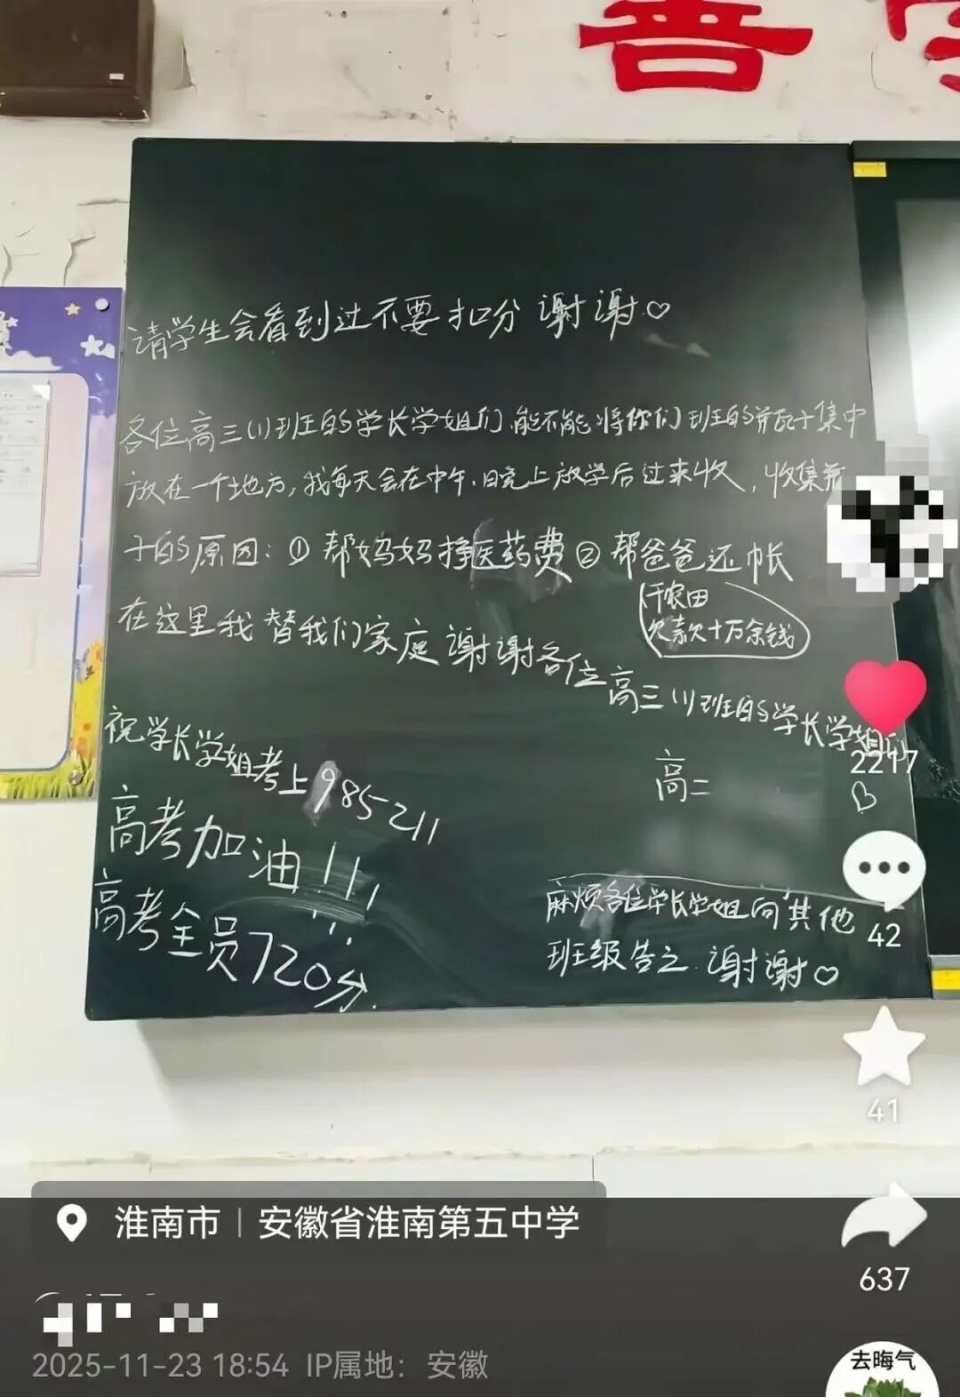 普
请学生会看到过不要扣分 谢谢♡
各位高三(1)班的学长学姐们,能不能将你们班的并瓦十集中
放在一个地方,我每天会在中午.日晚上放学后过来收,收集并瓦
十的原因:① 帮妈妈挣医药费② 帮爸爸还帐
干农田
欠款十万余钱
在这里我替我们家庭谢谢各位高三(1)班的学长学姐们
祝学长学姐考上985211
高考加油!!!
高考全员720分.
高二
B
麻烦各位学长学姐向其他
班级告之.谢谢♡
2217
42
41
淮南市 | 安徽省淮南第五中学
637
2025-11-23 18:54 IP属地:安徽
去晦气